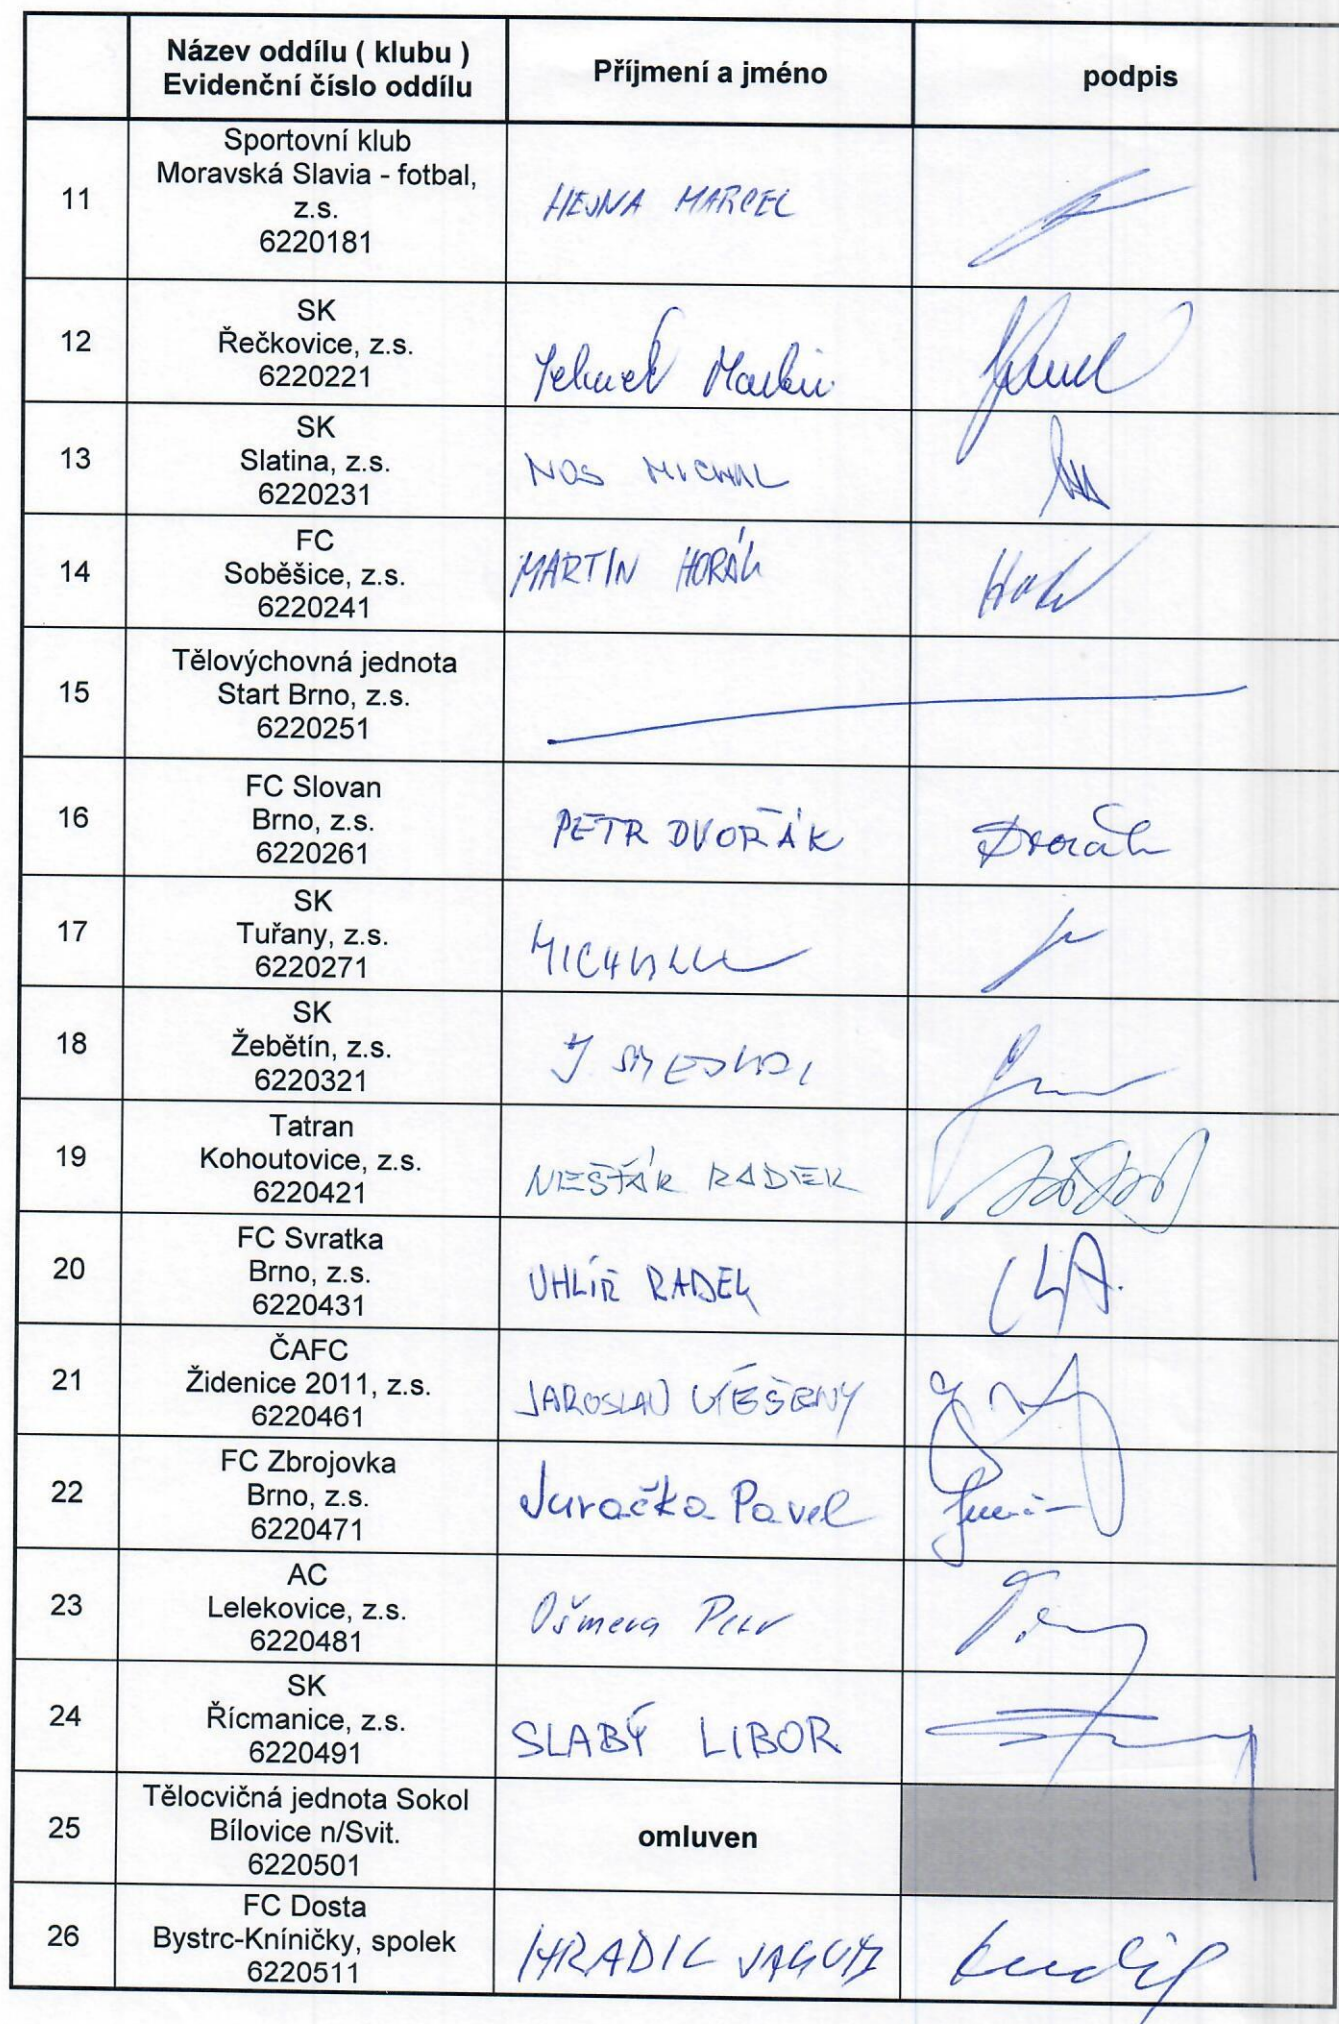 Název oddílu ( klubu )
Evidenční číslo oddílu
Příjmení a jméno
podpis
11
Sportovní klub
Moravská Slavia - fotbal,
z.s.
6220181
HEJNA MARCEL
12
SK
Řečkovice, z.s.
6220221
13
SK
Slatina, z.s.
6220231
NOS MICHAL
14
FC
Soběšice, z.s.
6220241
MARTIN HORÁK
15
Tělovýchovná jednota
Start Brno, z.s.
6220251
16
FC Slovan
Brno, z.s.
6220261
PETR DVOŘÁK
Dvořák
17
SK
Tuřany, z.s.
6220271
18
SK
Žebětín, z.s.
6220321
19
Tatran
Kohoutovice, z.s.
6220421
NEŠŤÁK RADEK
20
FC Svratka
Brno, z.s.
6220431
UHLÍŘ RADEK
21
ČAFC
Židenice 2011, z.s.
6220461
JAROSLAV
22
FC Zbrojovka
Brno, z.s.
6220471
Juračka Pavel
23
AC
Lelekovice, z.s.
6220481
Ošmera Petr
24
SK
Řícmanice, z.s.
6220491
SLABÝ LIBOR
25
Tělocvičná jednota Sokol
Bílovice n/Svit.
6220501
omluven
26
FC Dosta
Bystrc-Kníničky, spolek
6220511
HRADIL